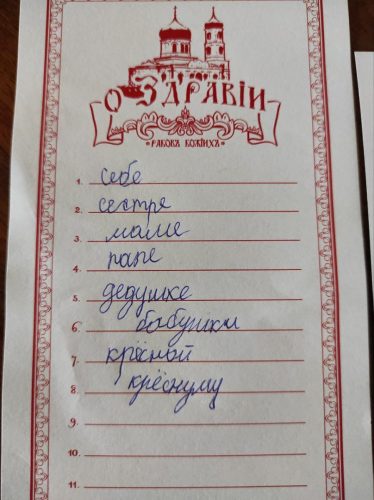 О ЗДРАВІИ
•РАБОВЪ БОЖІИХЪ•
1. себе
2. сестре
3. маме
4. папе
5. дедушке
6. бабушки
7. крёсной
8. крёснуму
9.
10.
11.